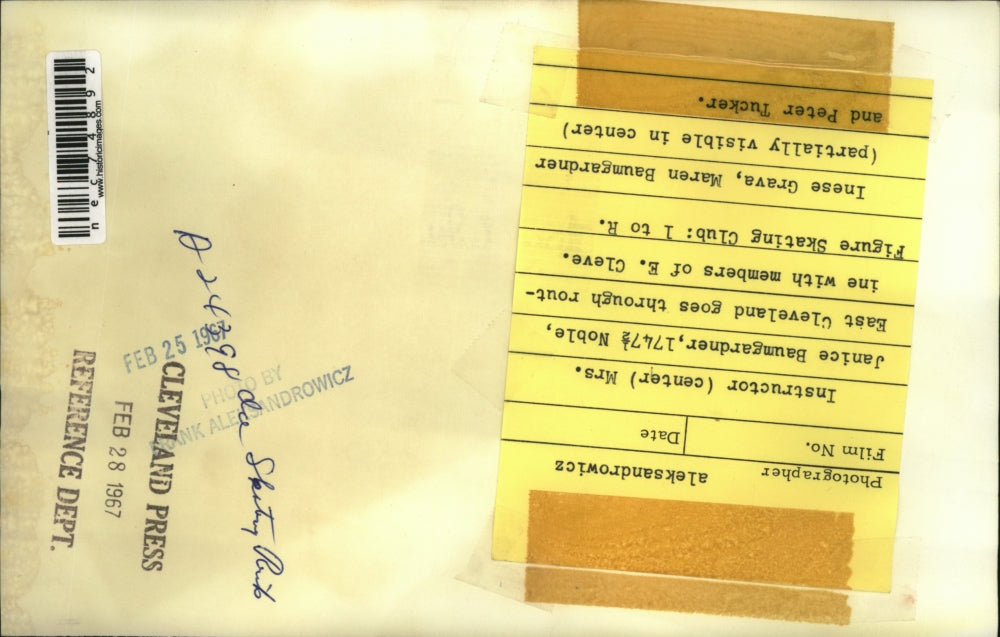 Photographer aleksandrowicz
Film No. Date
Instructor (center) Mrs.
Janice Baumgardner,1747½ Noble,
East Cleveland goes through rout-
ine with members of E. Cleve.
Figure Skating Club: l to R.
Inese Grava, Maren Baumgardner
(partially visible in center)
and Peter Tucker.
nec74892
www.historicimages.com
FEB 25 1967
PHOTO BY
FRANK ALEKSANDROWICZ
CLEVELAND PRESS
FEB 28 1967
REFERENCE DEPT.
Skating Rink